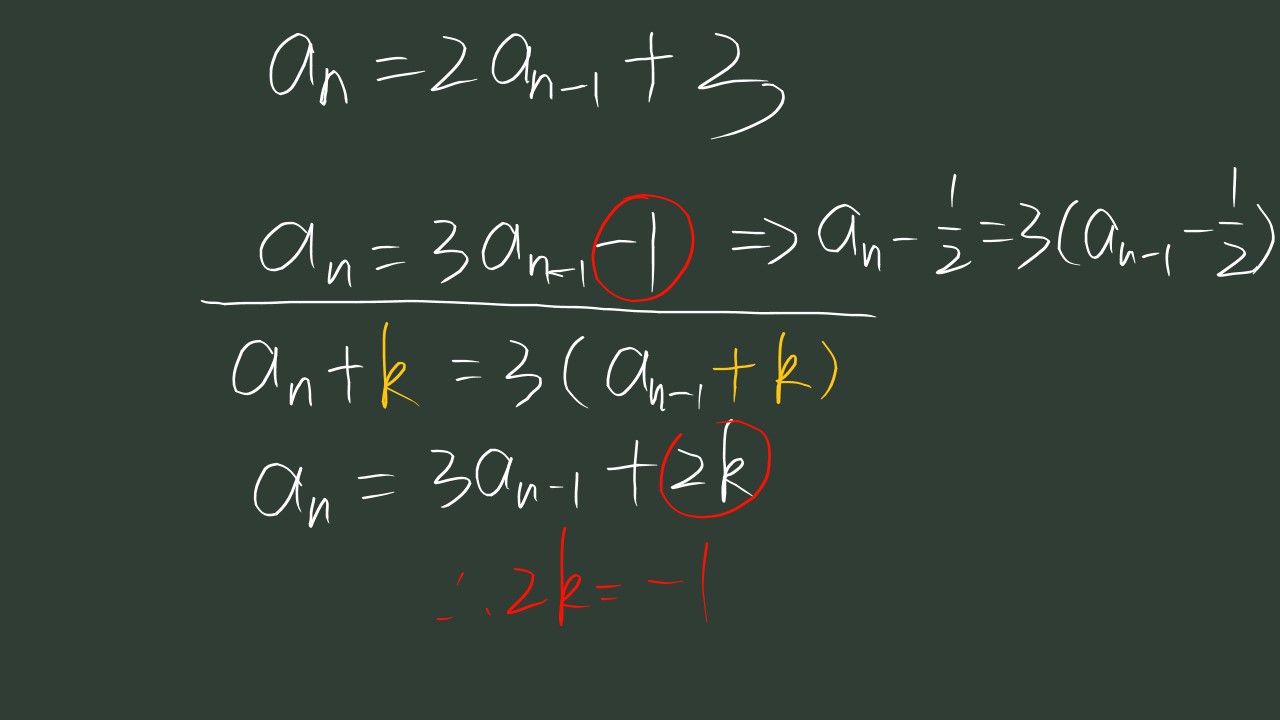 aₙ = 2aₙ₋₁ + 3
aₙ = 3aₙ₋₁ - 1 ⇒ aₙ - 1/2 = 3(aₙ₋₁ - 1/2)
aₙ + k = 3(aₙ₋₁ + k)
aₙ = 3aₙ₋₁ + 2k
∴ 2k = -1